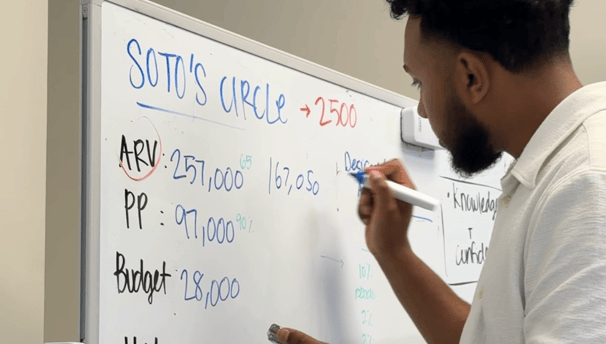 SOTO'S CIRCLE → 2500
ARV : 257,000 65 167,050
PP : 97,000 90%
Budget 28,000
• Knowledge
+
10%